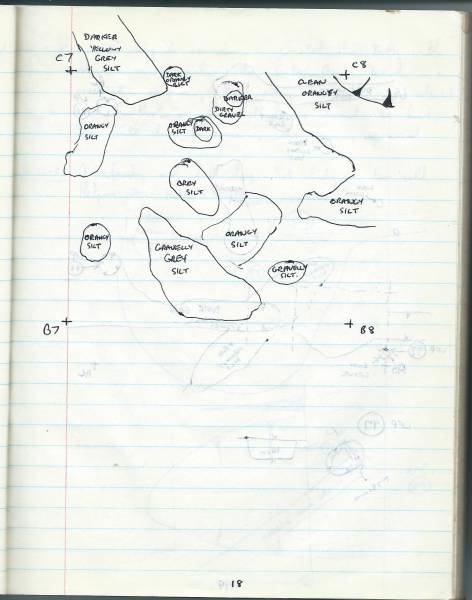 DARKER
YELLOWY
GREY
SILT
C7
C8
DARK
ORANGY
SILT
CLEAN
ORANGEY
SILT
DARKER
DIRTY
GRAVEL
ORANGY
SILT
ORANGY
SILT
DARK
GREY
SILT
ORANGY
SILT
ORANGY
SILT
ORANGY
SILT
GRAVELLY
GREY
SILT
GRAVELLY
SILT.
B7
B8
18